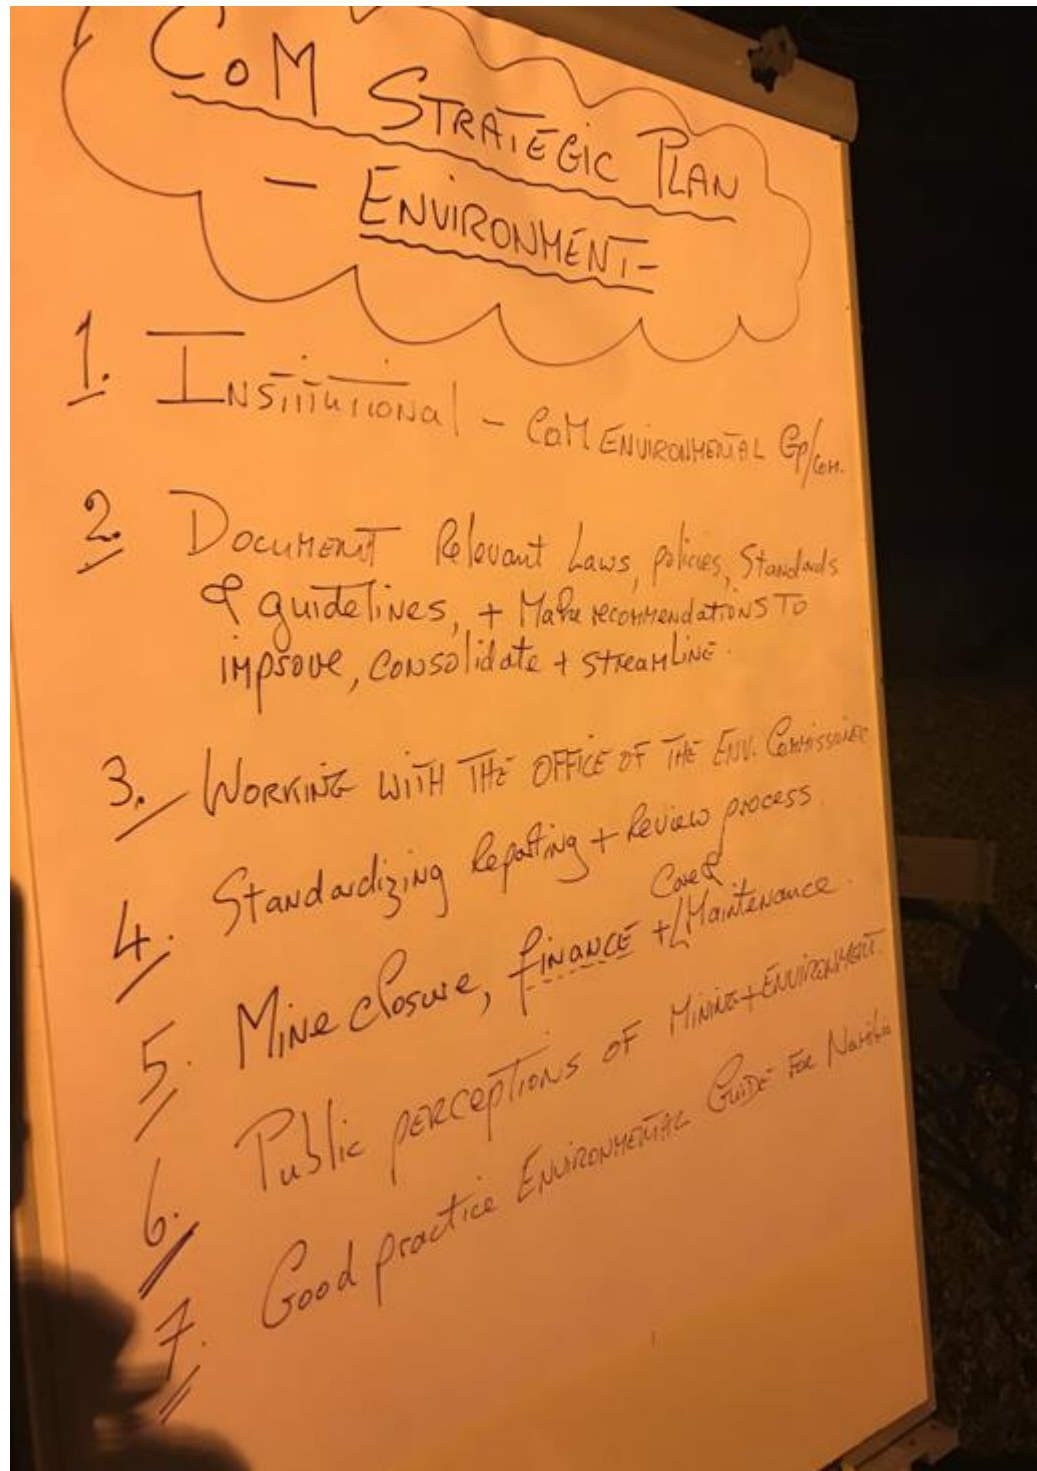 CoM STRATEGIC PLAN
- ENVIRONMENT-
1. INSTITUTIONAL - CoM ENVIRONMENTAL Gp/Com.
2. DOCUMENT Relevant Laws, policies, Standards
& guidelines, + Make recommendations to
improve, consolidate + streamline.
3. WORKING WITH THE OFFICE OF THE ENV. Commissioner
4. Standardizing Reporting + Review process
5. Mine closure, finance + Care & Maintenance.
6. Public perceptions of Mining + Environment.
7. Good practice Environmental Guide For Namibia